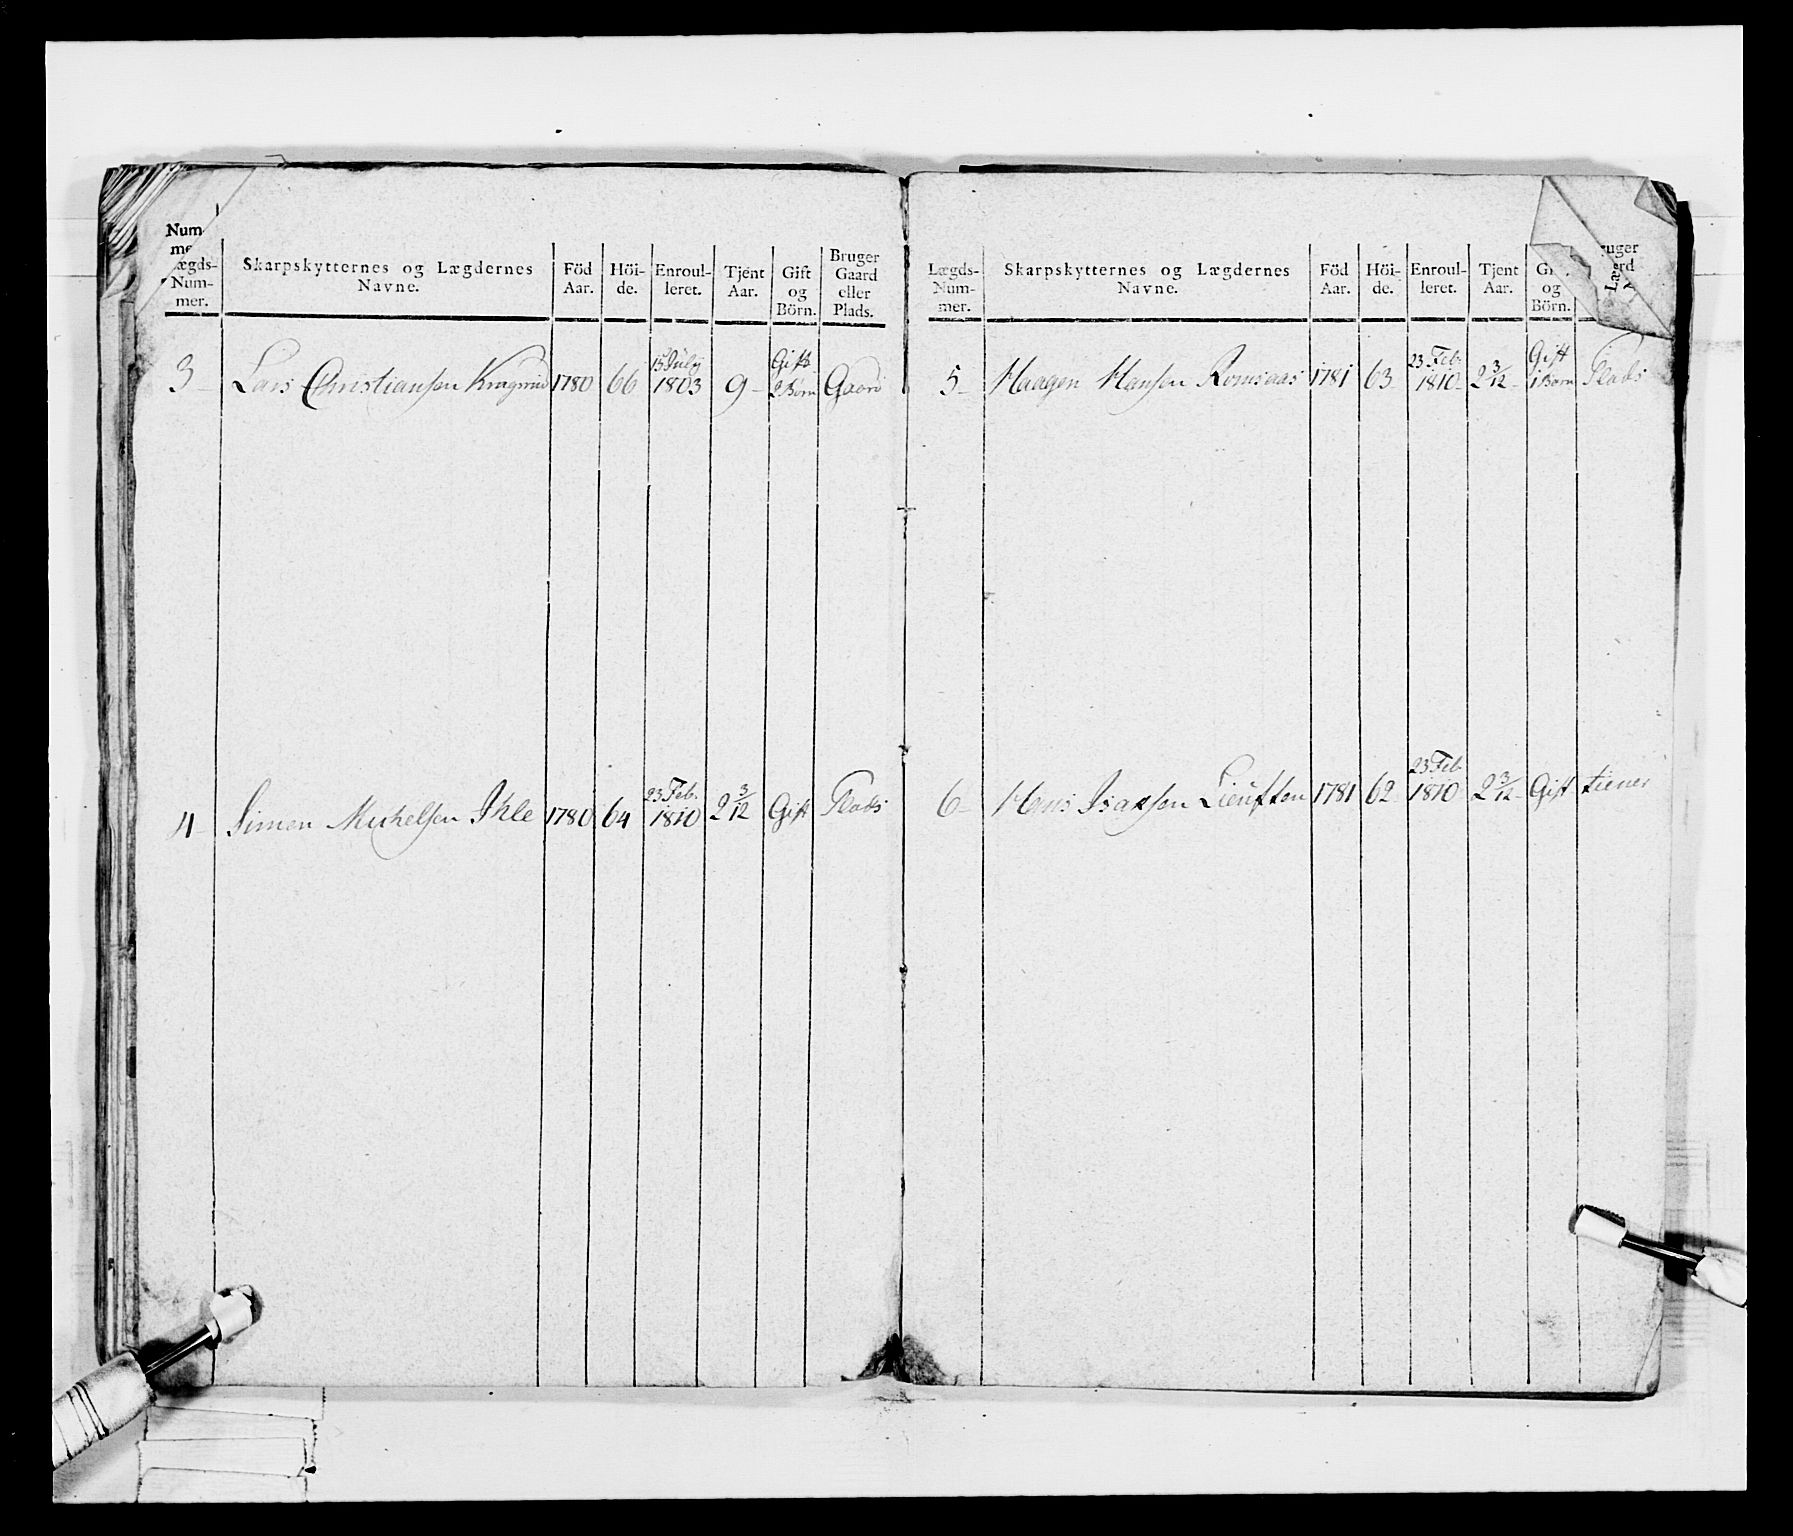 Num-
Lægds-
Num-
mer.
Skarpskytternes og Lægdernes
Navne.
Föd
Aar.
Höi-
de.
Enroul-
leret.
Tjent
Aar.
Gift
og
Börn.
Bruger
Gaard
eller
Plads.
3 Lars Christiansen 1780 66 15 July 1803 9 Gift 2 Börn Gaard
4 Simen Michelsen Ihle 1780 64 23 Feb. 1810 2 3/12 Gift Plads
Lægds-
Num-
mer.
Skarpskytternes og Lægdernes
Navne.
Föd
Aar.
Höi-
de.
Enroul-
leret.
Tjent
Aar.
og
Börn.
5 Haagen Hansen Romsaas 1781 63 23 Feb. 1810 2 3/12 Gift 1 Barn Plads
6 Hans Isaksen 1781 62 23 Feb. 1810 2 3/12 Gift tiener